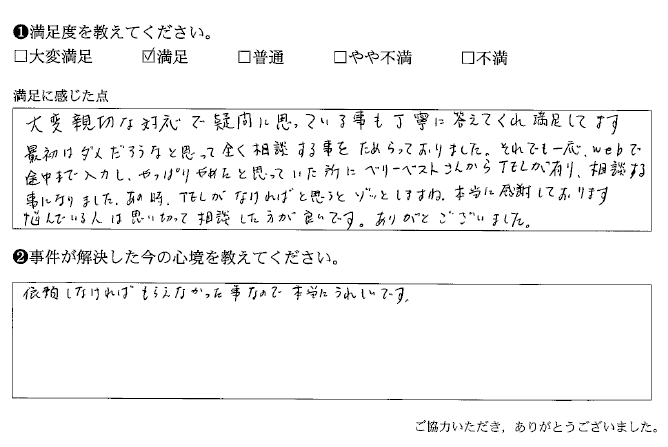 ❶満足度を教えてください。
□大変満足 ☑満足 □普通 □やや不満 □不満
満足に感じた点
大変親切な対応で疑問に思っている事も丁寧に答えてくれ満足してます
最初はダメだろうなと思って全く相談する事をためらっておりました。それでも一応、webで
途中まで入力し、やっぱりやめたと思っていた所にベリーベストさんからTELが有り、相談する
事になりました。あの時、TELがなければと思うとゾッとしますね。本当に感謝しております
悩んでいる人は思い切って相談した方が良いです。ありがとございました。
❷事件が解決した今の心境を教えてください。
依頼しなければもらえなかった事なので本当にうれしいです。
ご協力いただき，ありがとうございました。